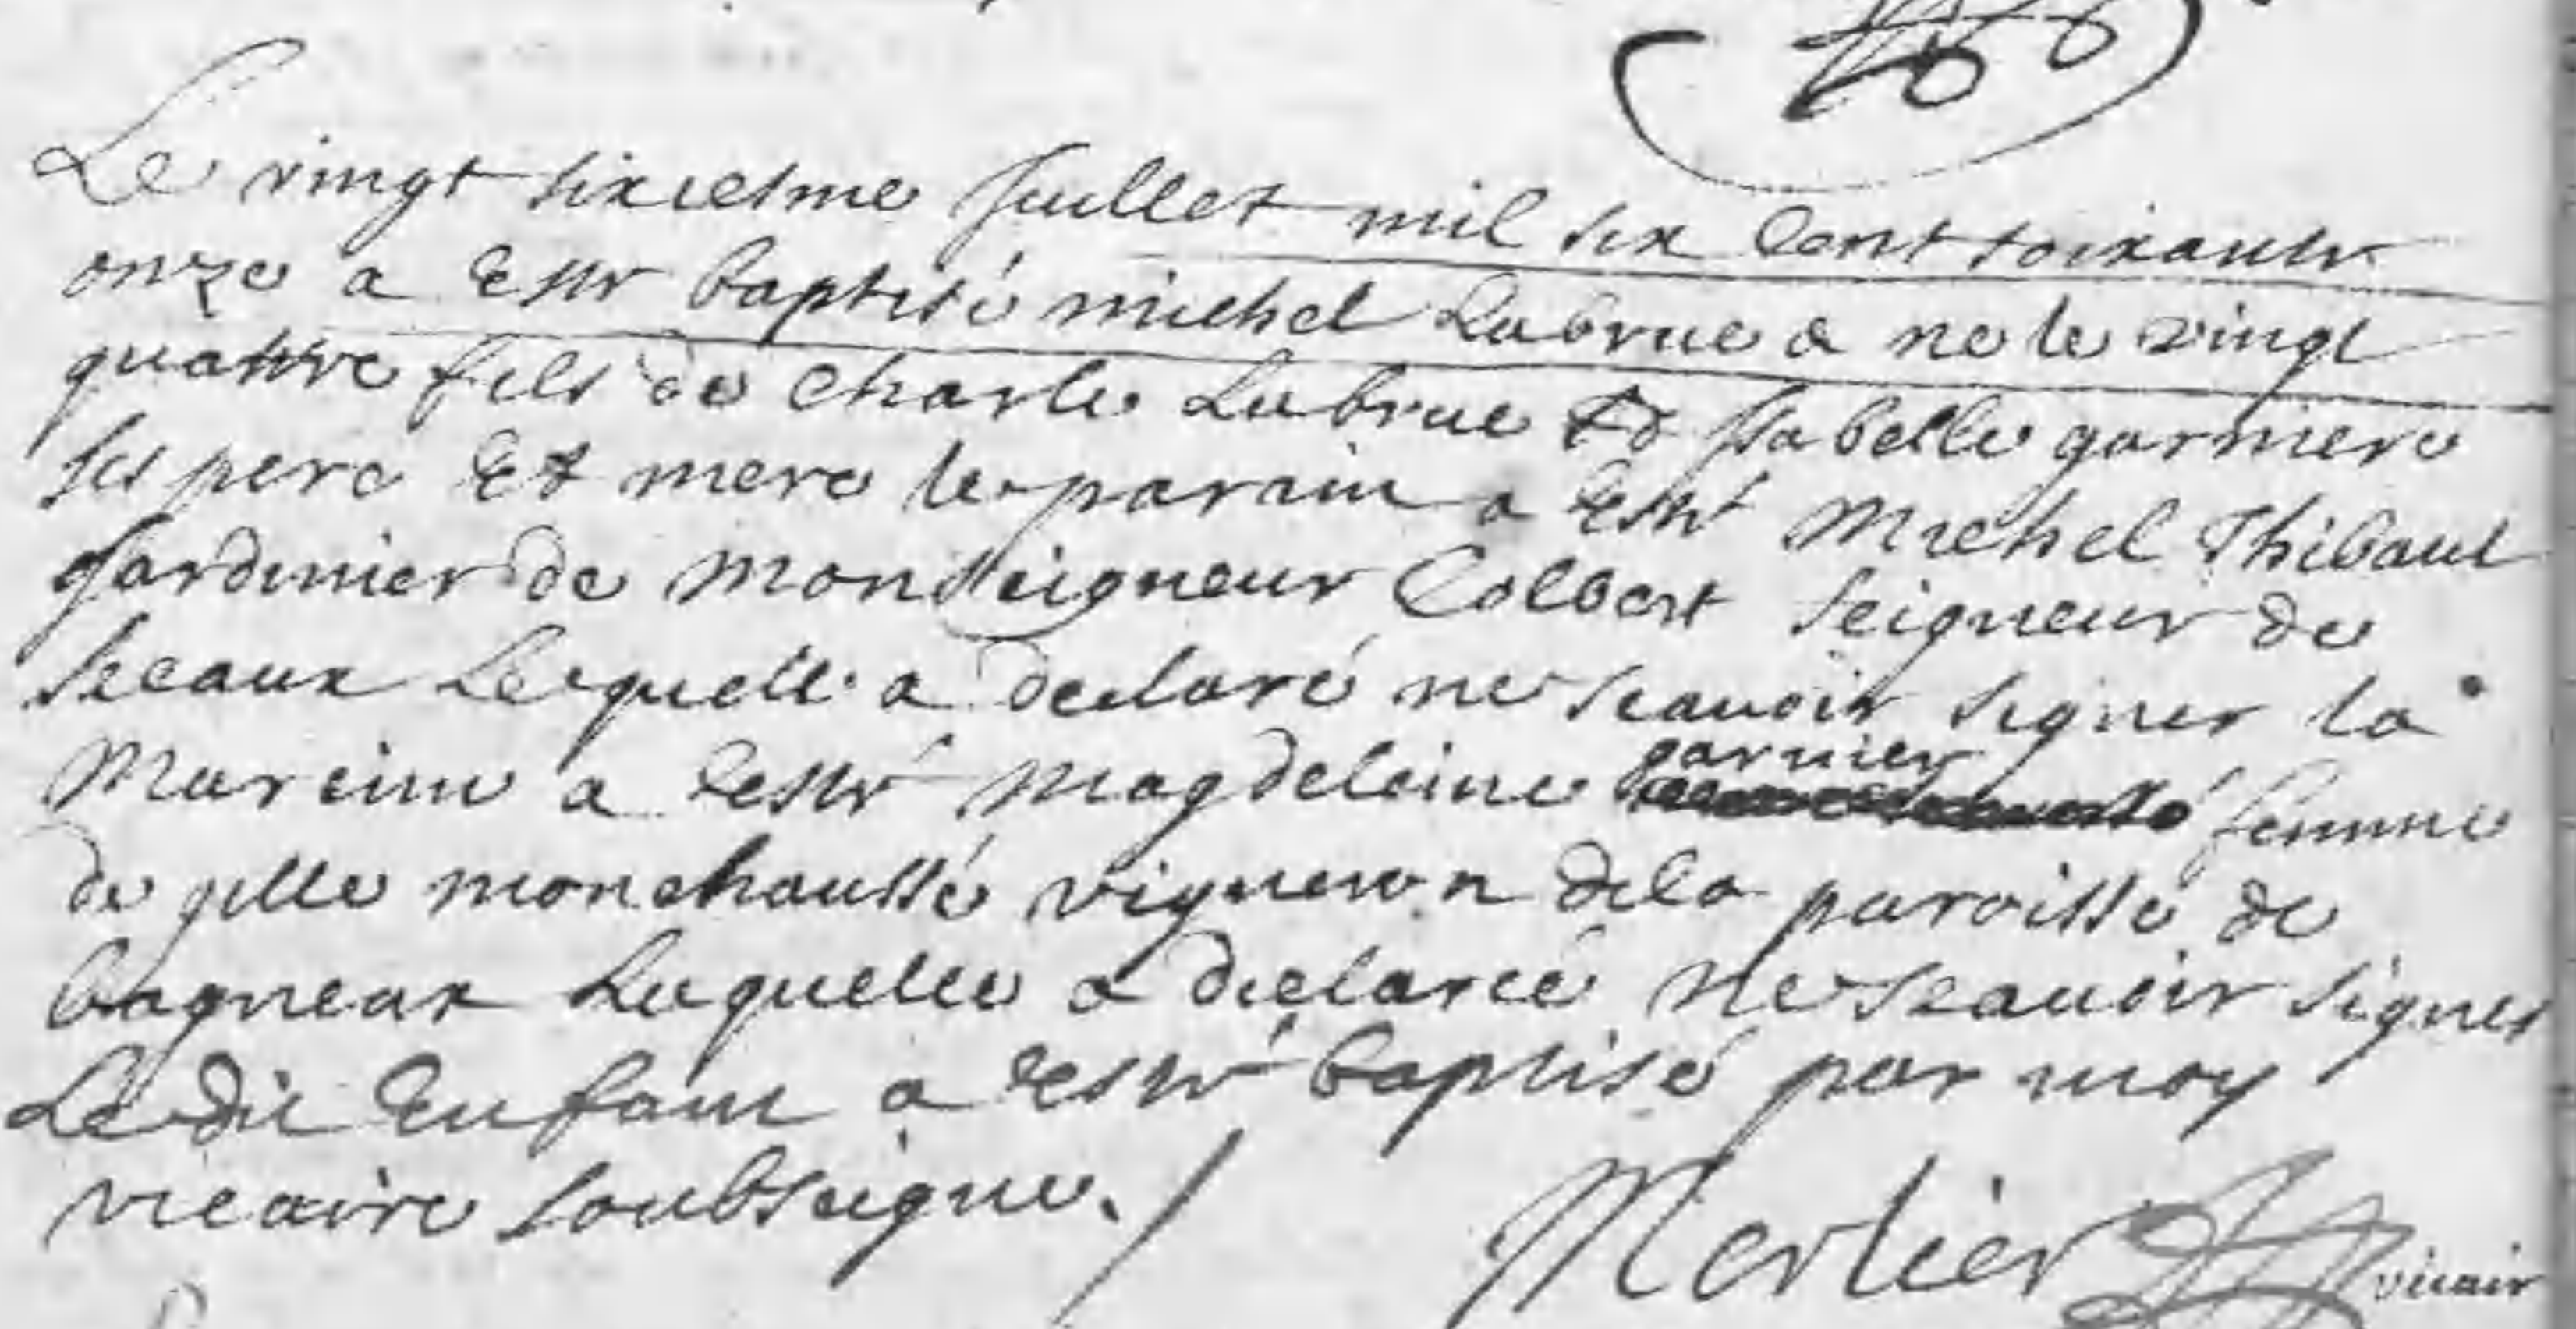 Le vingt sixiesme Juillet mil six cent soixante
onze a esté baptisé michel Labrue & né le vingt
quattre fils de Charle Labrue Et Isabelle garniere
ses pere Et mere le parain a Esté Michel Thibaut
Jardinier de Monseigneur Colbert seigneur de
sceaux Lequell a declaré ne scauoir signer la
Mareine a esté Magdeleine garnier femme
de gille monchaussé vigneron dela paroisse de
bagneux Laquelle a declareé ne scauoir signer
Le dit Enfant a esté baptisé par moy
vicaire soubseigne./
Merlier vicair